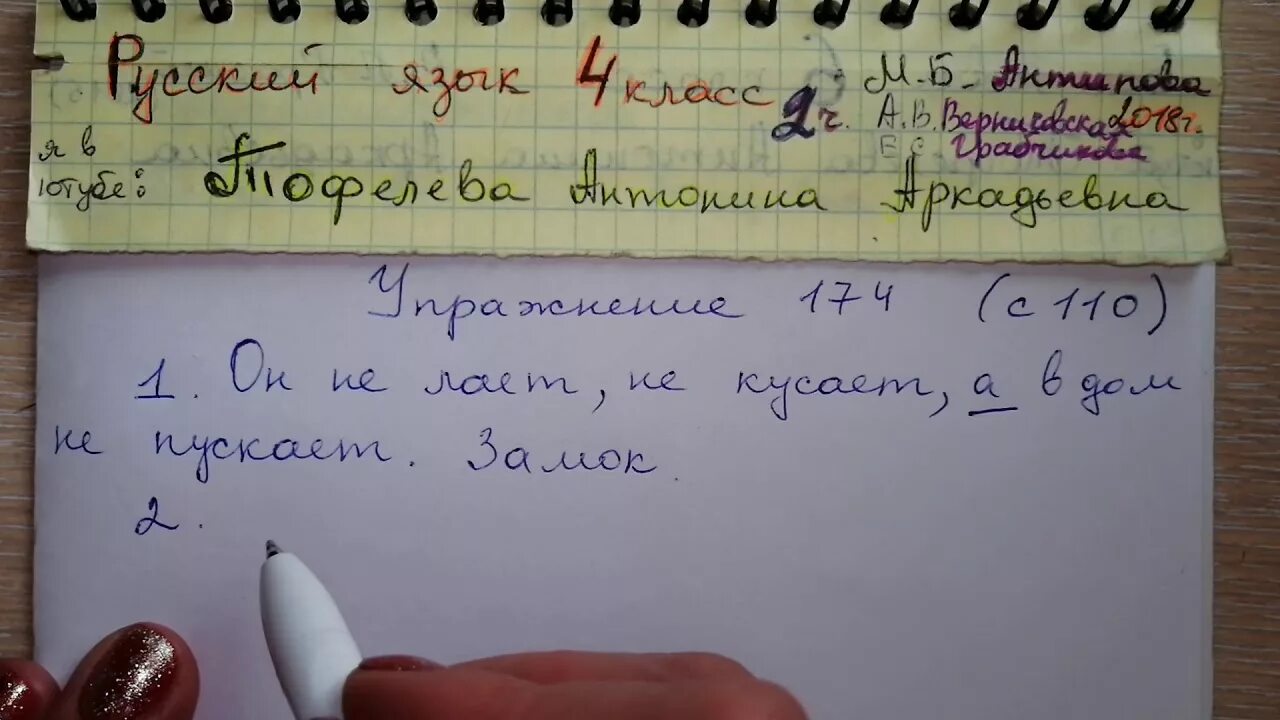 Русский язык 4 класс 2 ч.
М.Б. Антипова
А.В. Верниковская 2018 г.
Е.С. Грабчикова
я в
ютубе: Тофелева Антонина Аркадьевна
Упражнение 174 (с 110)
1. Он не лает, не кусает, а в дом
не пускает. Замок.
2.